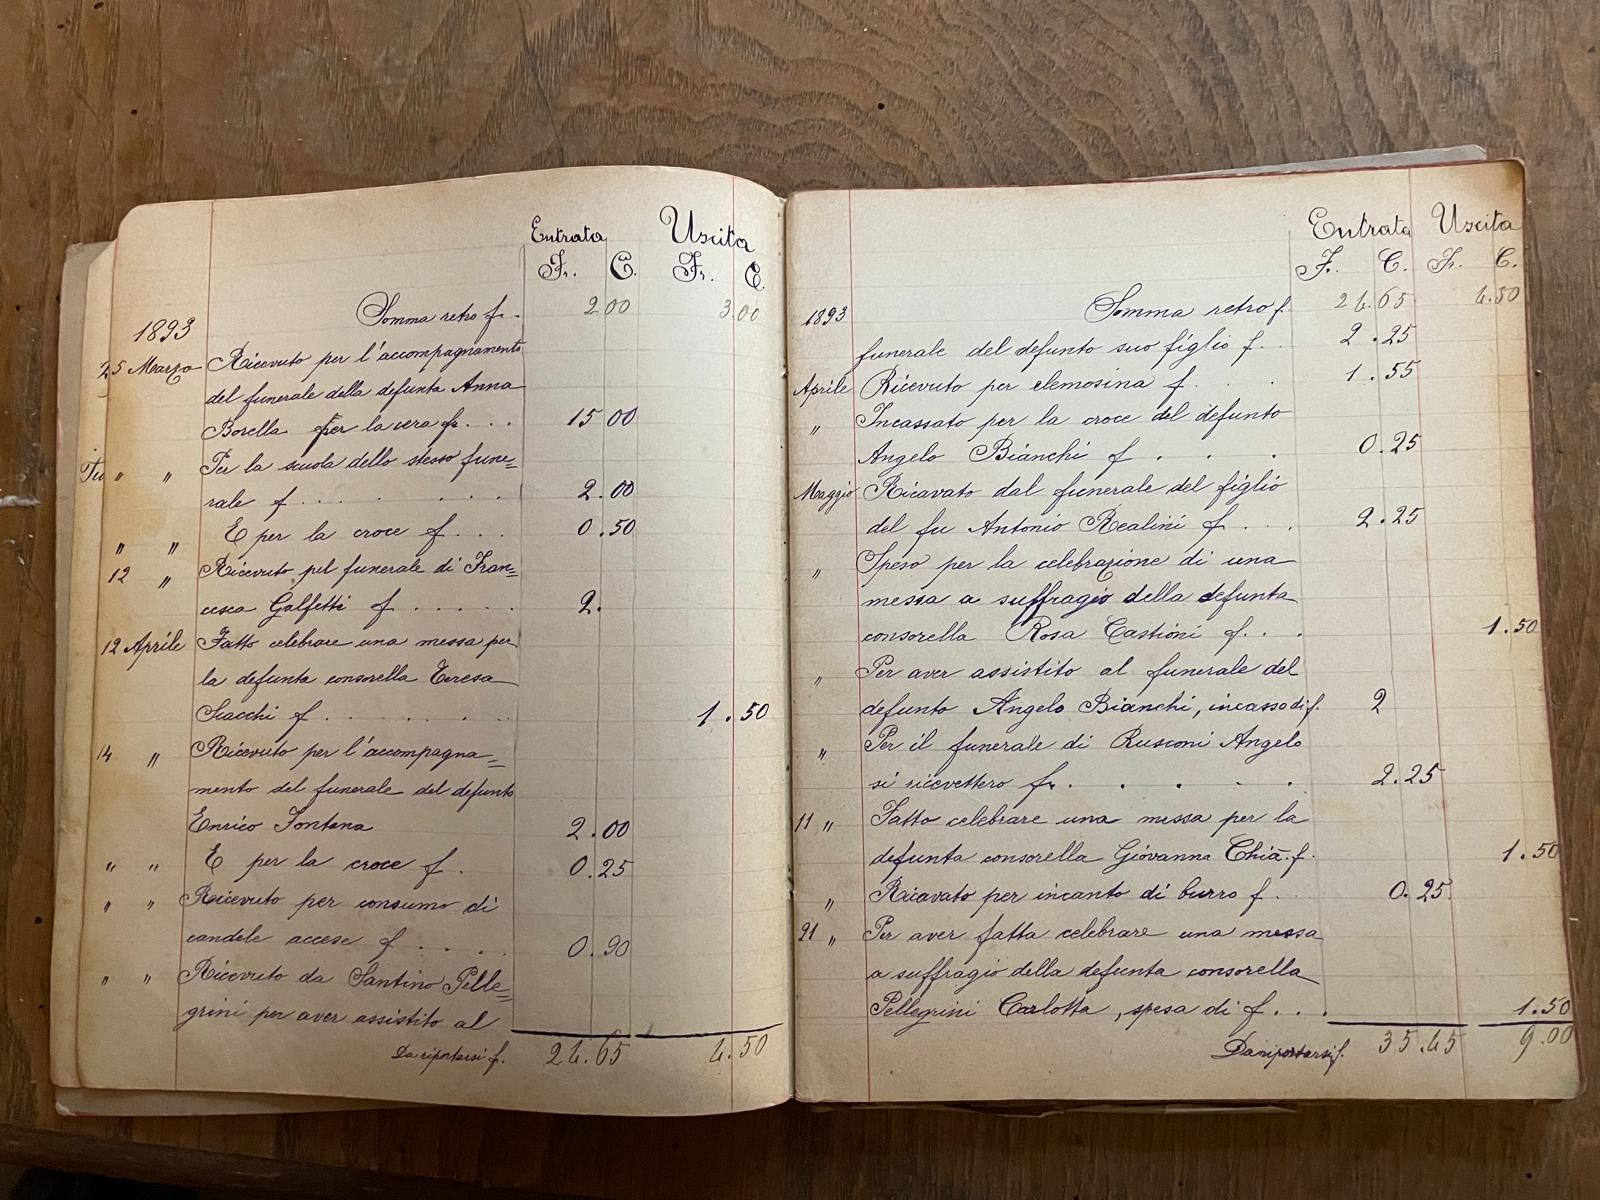 Entrata Uscita
Fr. C. Fr. C.
Somma retro fr. 2 00 3.00
1893
25 Marzo Ricevuto per l'accompagnamento
del funerale della defunta Anna
Borella per la cera fr. . . . 15 00
" " Per la scuola dello stesso fune=
rale f. . . . . . 2.00
" " E per la croce f. . . . 0.50
12 " Ricevuto pel funerale di Fran=
cesca Galfetti f. . . . . . 2.
12 Aprile Fatto celebrare una messa per
la defunta consorella Teresa
Scacchi f. . . . . . 1.50
14 " Ricevuto per l'accompagna=
mento del funerale del defunto
Enrico Fontana 2.00
" " E per la croce f. . 0.25
" " Ricevuto per consumo di
candele accese f. . . . 0.90
" " Ricevuto da Santino Pelle=
grini per aver assistito al
Da riportarsi f. 24.65 4.50
Entrata Uscita
F. C. Fr. C.
1893 Somma retro f. 24.65 4.50
funerale del defunto suo figlio f. . 2.25
Aprile Ricevuto per elemosina f. . . 1.55
" Incassato per la croce del defunto
Angelo Bianchi f . . . 0.25
Maggio Ricavato dal funerale del figlio
del fu Antonio Realini f. . . . 2.25
" Speso per la celebrazione di una
messa a suffragio della defunta
consorella Rosa Castioni f. . . 1.50
" Per aver assistito al funerale del
defunto Angelo Bianchi, incasso di f. 2
" Per il funerale di Rusconi Angelo
si ricevettero fr. . . . . . 2.25
11 " Fatto celebrare una messa per la
defunta consorella Giovanna Chiä. f. 1.50
" Ricavato per incanto di burro f. . 0.25
21 " Per aver fatta celebrare una messa
a suffragio della defunta consorella
Pellegrini Carlotta, spesa di f. . . . 1.50
Da riportarsi f. 35.45 9.00